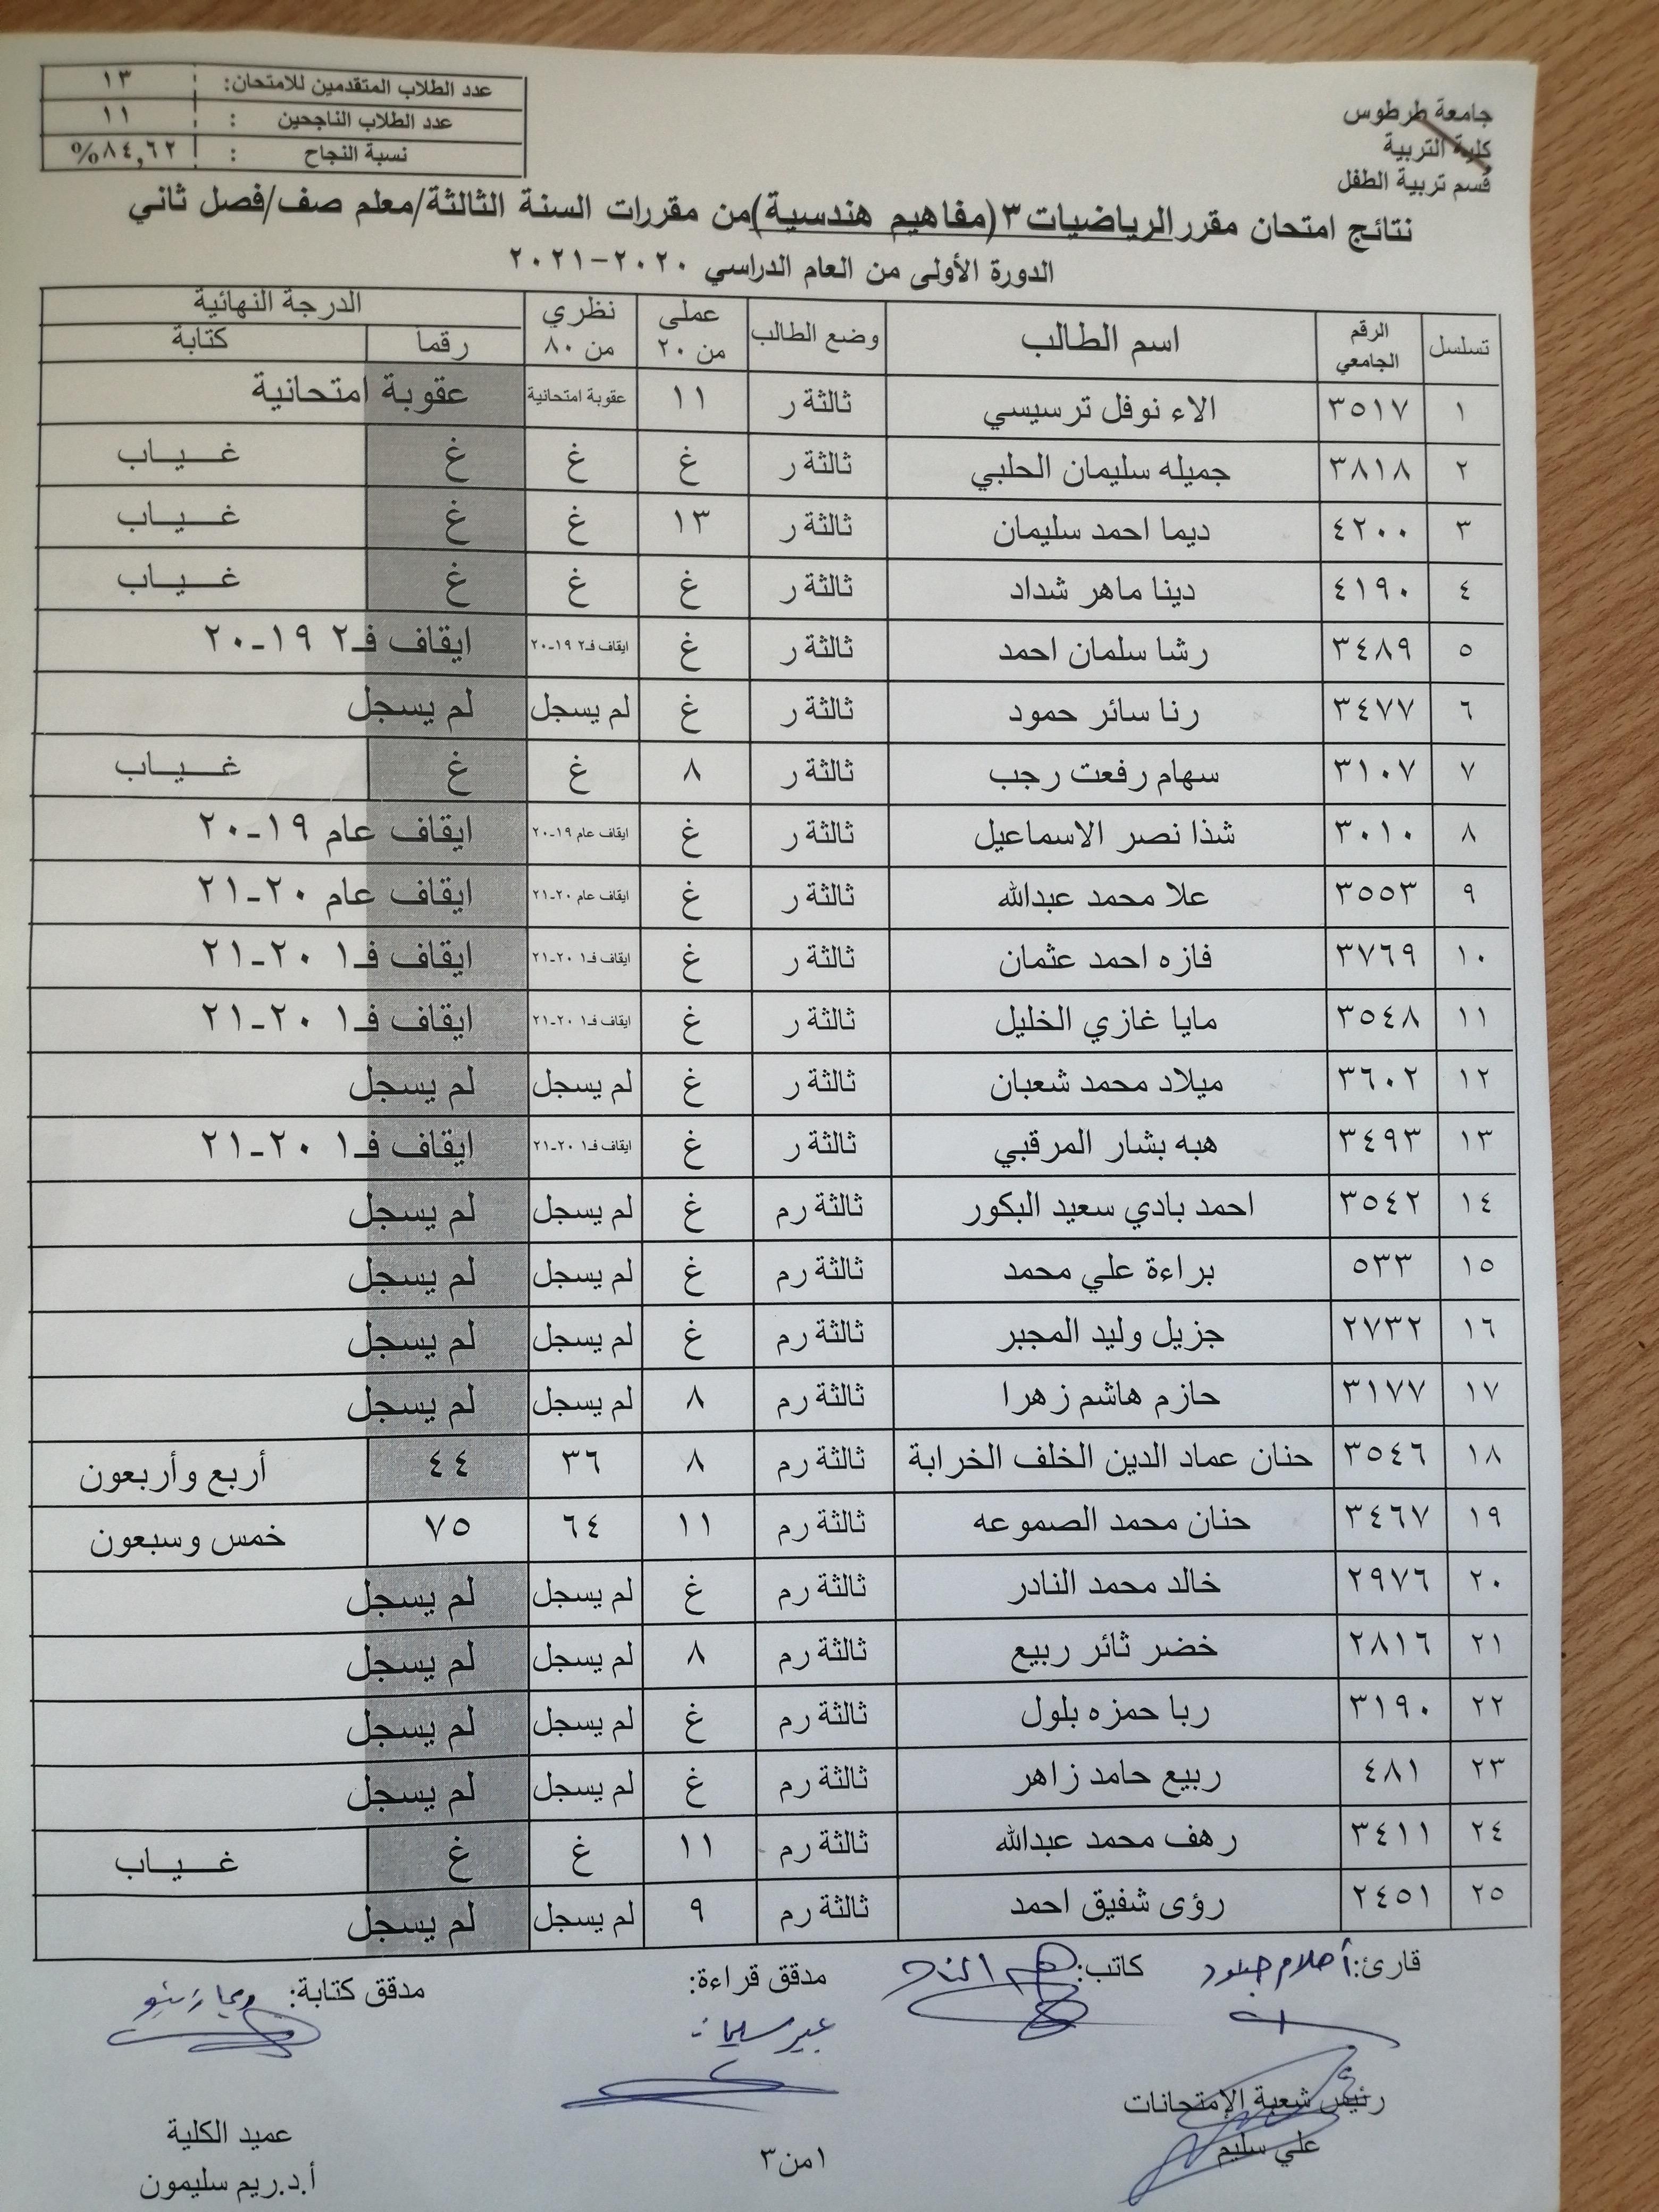 جامعة طرطوس
كلية التربية
قسم تربية الطفل
عدد الطلاب المتقدمين للامتحان: ١٣
عدد الطلاب الناجحين : ١١
نسبة النجاح : ٨٤,٦٢%
نتائج امتحان مقرر الرياضيات ٣ (مفاهيم هندسية) من مقررات السنة الثالثة/معلم صف/فصل ثاني
الدورة الأولى من العام الدراسي ٢٠٢٠-٢٠٢١
تسلسل الرقم الجامعي اسم الطالب وضع الطالب عملي من ٢٠ نظري من ٨٠ الدرجة النهائية رقماً كتابة
١ ٣٥١٧ الاء نوفل ترسيسي ثالثة ر ١١ عقوبة امتحانية عقوبة امتحانية
٢ ٣٨١٨ جميله سليمان الحلبي ثالثة ر غ غ غ غـــيــاب
٣ ٤٢٠٠ ديما احمد سليمان ثالثة ر ١٣ غ غ غـــيــاب
٤ ٤١٩٠ دينا ماهر شداد ثالثة ر غ غ غ غـــيــاب
٥ ٣٤٨٩ رشا سلمان احمد ثالثة ر غ ايقاف فـ٢ ١٩-٢٠ ايقاف فـ٢ ١٩-٢٠
٦ ٣٤٧٧ رنا سائر حمود ثالثة ر غ لم يسجل لم يسجل
٧ ٣١٠٧ سهام رفعت رجب ثالثة ر ٨ غ غ غـــيــاب
٨ ٣٠١٠ شذا نصر الاسماعيل ثالثة ر غ ايقاف عام ١٩-٢٠ ايقاف عام ١٩-٢٠
٩ ٣٥٥٣ علا محمد عبدالله ثالثة ر غ ايقاف عام ٢٠-٢١ ايقاف عام ٢٠-٢١
١٠ ٣٧٦٩ فازه احمد عثمان ثالثة ر غ ايقاف فـ١ ٢٠-٢١ ايقاف فـ١ ٢٠-٢١
١١ ٣٥٤٨ مايا غازي الخليل ثالثة ر غ ايقاف فـ١ ٢٠-٢١ ايقاف فـ١ ٢٠-٢١
١٢ ٣٦٠٢ ميلاد محمد شعبان ثالثة ر غ لم يسجل لم يسجل
١٣ ٣٤٩٣ هبه بشار المرقبي ثالثة ر غ ايقاف فـ١ ٢٠-٢١ ايقاف فـ١ ٢٠-٢١
١٤ ٣٥٤٢ احمد بادي سعيد البكور ثالثة رم غ لم يسجل لم يسجل
١٥ ٥٣٣ براءة علي محمد ثالثة رم غ لم يسجل لم يسجل
١٦ ٢٧٣٢ جزيل وليد المجبر ثالثة رم غ لم يسجل لم يسجل
١٧ ٣١٧٧ حازم هاشم زهرا ثالثة رم ٨ لم يسجل لم يسجل
١٨ ٣٥٤٦ حنان عماد الدين الخلف الخرابة ثالثة رم ٨ ٣٦ ٤٤ أربع وأربعون
١٩ ٣٤٦٧ حنان محمد الصموعه ثالثة رم ١١ ٦٤ ٧٥ خمس وسبعون
٢٠ ٢٩٧٦ خالد محمد النادر ثالثة رم غ لم يسجل لم يسجل
٢١ ٢٨١٦ خضر ثائر ربيع ثالثة رم ٨ لم يسجل لم يسجل
٢٢ ٣١٩٠ ربا حمزه بلول ثالثة رم غ لم يسجل لم يسجل
٢٣ ٤٨١ ربيع حامد زاهر ثالثة رم غ لم يسجل لم يسجل
٢٤ ٣٤١١ رهف محمد عبدالله ثالثة رم ١١ غ غ غـــيــاب
٢٥ ٢٤٥١ رؤى شفيق احمد ثالثة رم ٩ لم يسجل لم يسجل
قارئ: أحلام كاتب: مدقق قراءة: مدقق كتابة:
عبير سليمان
رئيس شعبة الإمتحانات
علي سليم
١من٣
عميد الكلية
أ.د.ريم سليمون